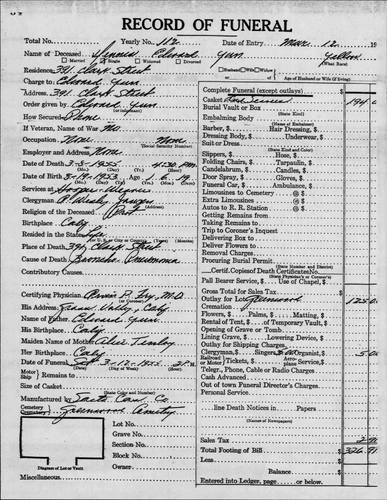 RECORD OF FUNERAL
Total No. Yearly No. 112 Date of Entry Mar. 12 19
Name of Deceased Dennis Edward Gun Yellow
(What Race)
Married Single Widowed Divorced Husband Wife Widow
Age of Husband or Wife (if living)
Residence 391 Clark Street
Charge to Edward Gun
Address 391 Clark Street
Order given by Edward Gun
How Secured Phone
If Veteran, Name of War No
Occupation None None
(Social Security Number)
Employer and Address None
Date of Death 3-8-1955 4:30 P.M.
(Mo.) (Day) (Yr.) (Hour)
Date of Birth 1953 Age 1 6 19
(Mo.) (Day) (Yr.) (Yrs.) (Mos.) (Days)
Services at
Clergyman Wesley
Religion of the Deceased Prot
Birthplace Calif
Resided in the State Life
Place of Death 391 Clark Street
Cause of Death Broncho Pneumonia
Contributory Causes
Certifying Physician M.D.
His Address Grass Valley, Calif
Name of Father Edward Gun
His Birthplace Calif
Maiden Name of Mother Alice
Her Birthplace Calif
Date of Funeral Sat 3-12-1955 2 P.M.
Motor Ship Remains to
Size of Casket
(State Color and Number)
Manufactured by Sacto Cas. Co.
Cemetery Greenwood Cemetery
Lot No.
Grave No.
Section No.
Block No.
Owner
Diagram of Lot or Vault
Miscellaneous
Complete Funeral (except outlays) $
Casket and Service 194 0
Burial Vault or Box
(State Kind)
Embalming Body
(Name of Embalmer)
Barber, $ Hair Dressing, $
Dressing Body, $ Underwear, $
Suit or Dress
(State Kind and Color)
Slippers, $ Hose, $
Folding Chairs, $ Tarpaulin, $
Candelabrum, $ Candles, $
Door Spray, $ Gloves, $
Funeral Car, $ Ambulance, $
Limousines to Cemetery @ $
Extra Limousines @ $
Autos to R. R. Station @ $
Getting Remains from
Taking Remains to
Trip to Coroner's Inquest
Delivering Box to
Deliver Flowers to
Removal Charges
Procuring Burial Permit
(State Number and District)
Certif. Copies of Death Certificates No.
(State Physician's or Coroner's)
Pall Bearer Service, $ Use of Chapel, $
Gross Total for Sales Tax $
Outlay for Greenwood 125 0
Cremation
Flowers, $ Palms, $ Matting, $
Rental of Tent, $ of Temporary Vault, $
Opening of Grave or Tomb
Lining Grave, $ Lowering Device, $
Outlay for Shipping Charges
Clergyman, $ Singers, $ Organist, $ 5 0
Railroad Tickets, $
Motor
Aero Service, $
Telegr., Phone, Cable or Radio Charges
Cash Advanced
Out of town Funeral Director's Charges
Personal Service
line Death Notices in Papers
(Names of Newspapers)
Sales Tax $ 2 91
Total Footing of Bill $ 326 91
Less $
Balance $
Entered into Ledger, page or below.